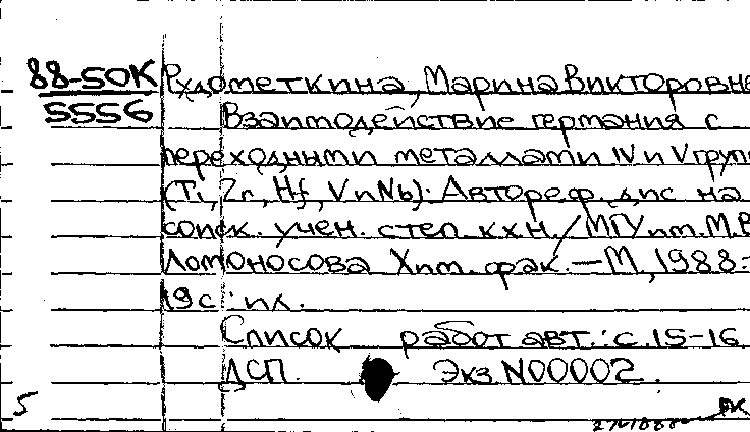 88-50К Рудометкина, Марина Викторовна
5556 Взаимодействие германия с
переходными металлами IV и V групп
(Ti, Zr, Hf, V и Nb): Автореф. дис на
соиск. учен. степ. к.х.н. / МГУ им. М.В.
Ломоносова Хим. фак. — М, 1988. -
19 с : ил.
Список работ авт.: с. 15-16
ДСП. Экз N00002.
5